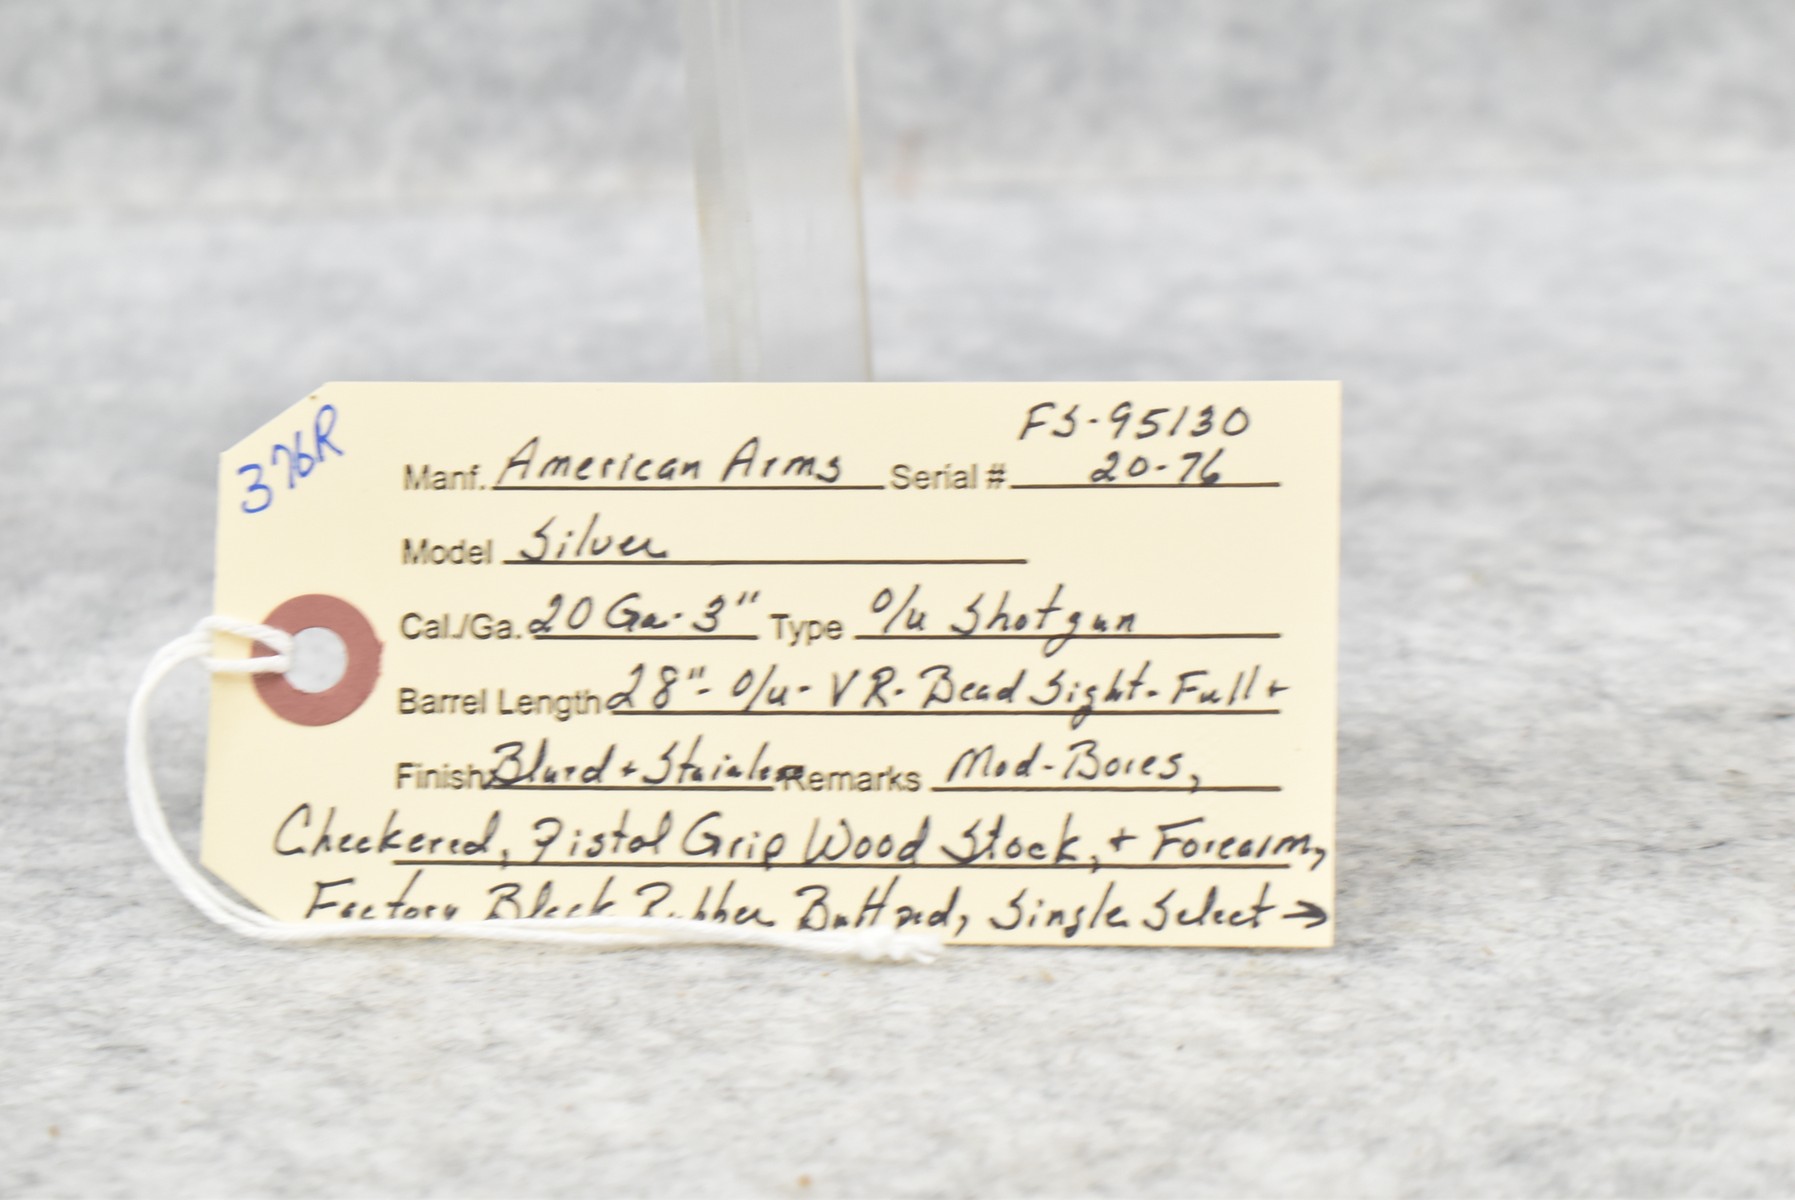 376R
FS-95130
Manf. American Arms Serial # 20-76
Model Silver
Cal./Ga. 20 Ga. 3" Type O/U Shotgun
Barrel Length 28"- O/U- VR- Bead Sight- Full +
Finish Blurd + Stainless Remarks Mod-Bores,
Checkered, Pistol Grip Wood Stock, + Forearm,
Factory Black Rubber Buttpad, Single Select →